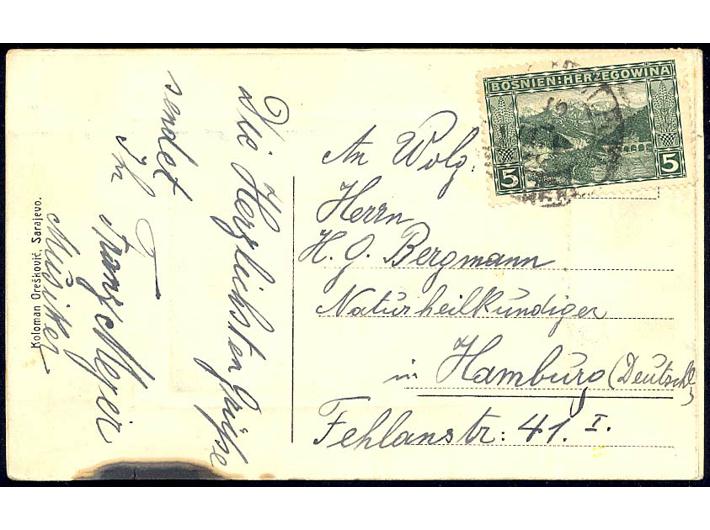 Die Herzlichsten Grüße
sendet
Ihr
Franz Mejer
Musiker
Koloman Orešković, Sarajevo.
BOSNIEN-HERZEGOWINA
5 5
An Wolg.
Herrn
H. G. Bergmann
Naturheilkundiger
in Hamburg (Deutschl)
Fehlanstr: 41. I.